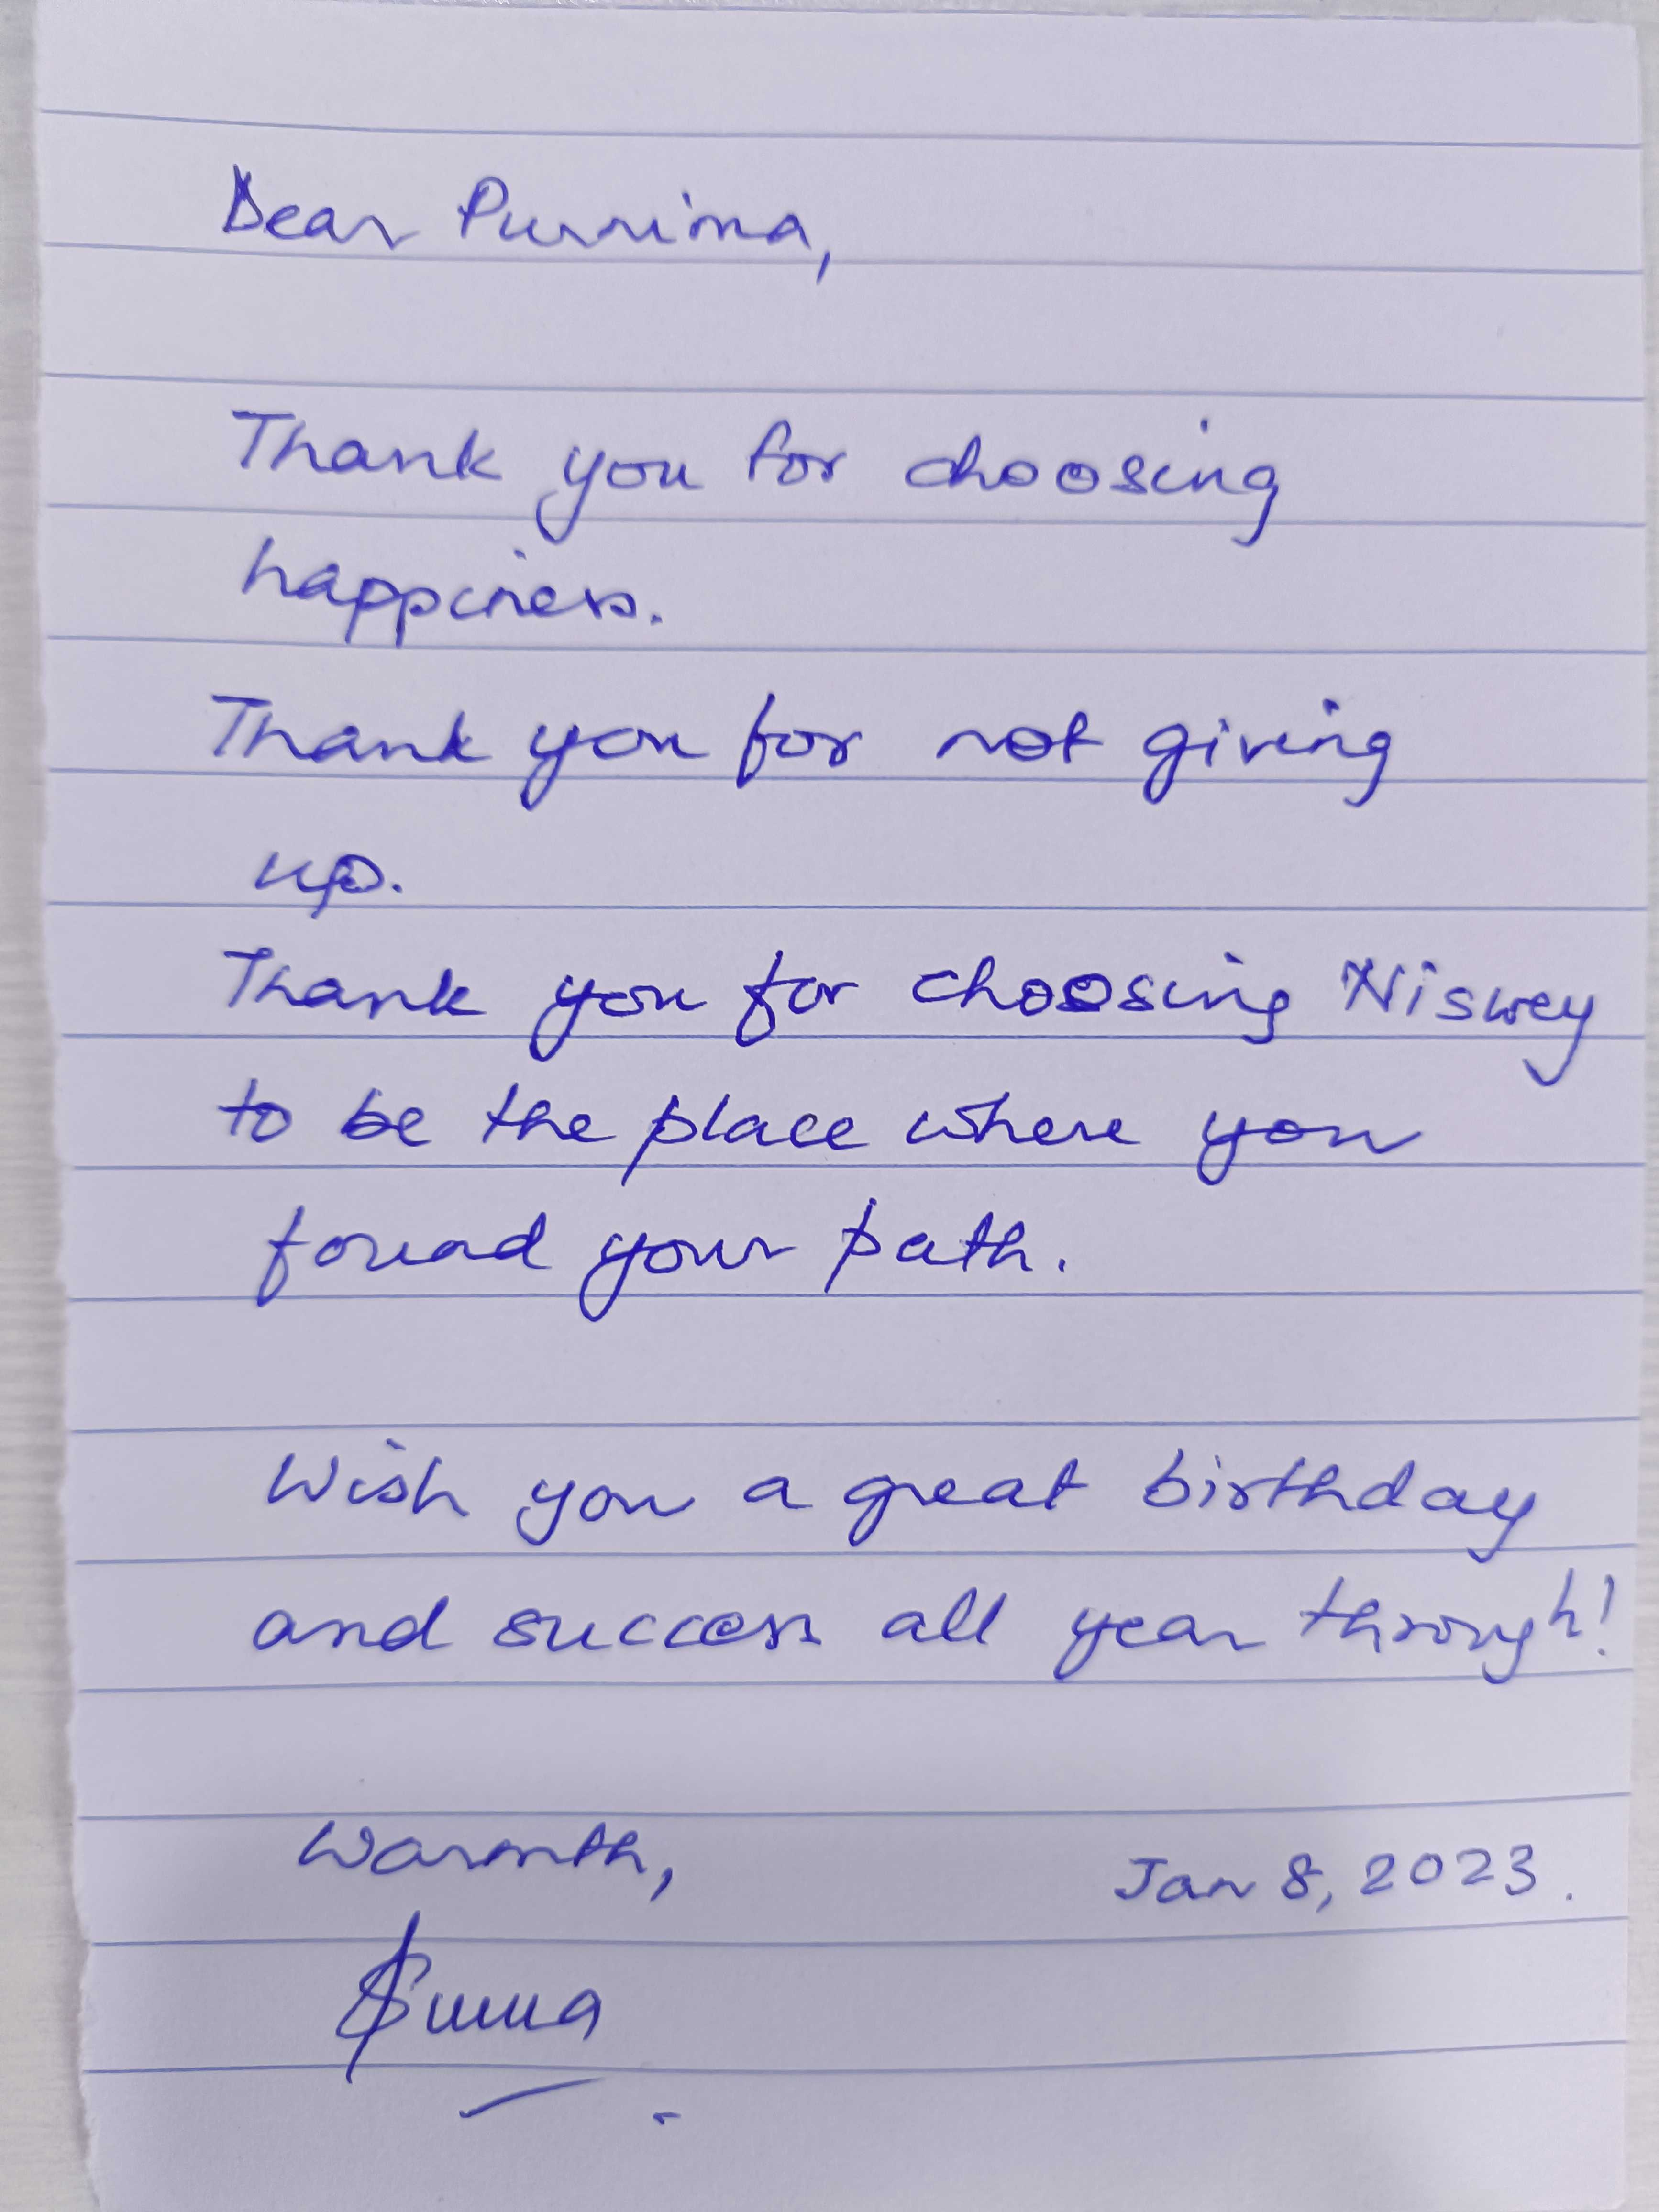 Dear Purnima,
Thank you for choosing
happiness.
Thank you for not giving
up.
Thank you for choosing Niswey
to be the place where you
found your path.
Wish you a great birthday
and success all year through!
Warmth,
Jan 8, 2023.